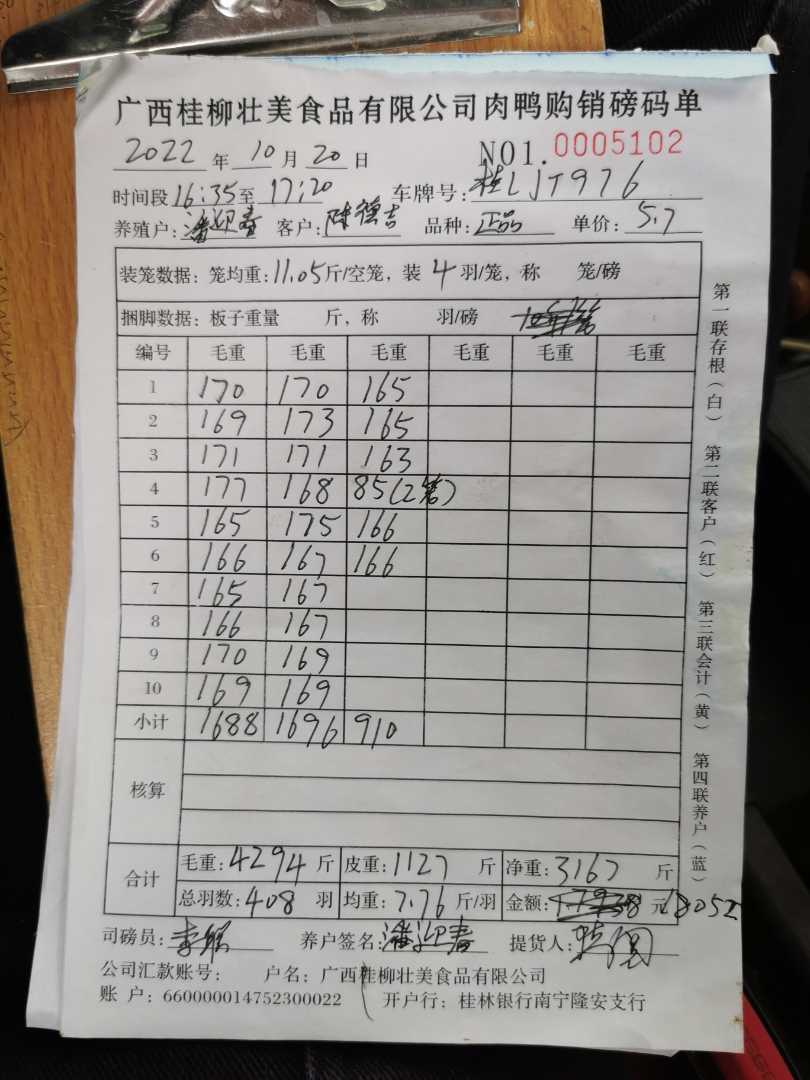 广西桂柳壮美食品有限公司肉鸭购销磅码单
2022 年 10 月 20 日 NO1.0005102
时间段 16:35至 17:20 车牌号: 桂LJT976
养殖户: 潘迎春 客户: 陈德吉 品种: 正品 单价: 5.7
装笼数据: 笼均重: 11.05斤/空笼, 装 4 羽/笼, 称 笼/磅
捆脚数据: 板子重量 斤, 称 羽/磅
编号 毛重 毛重 毛重 毛重 毛重 毛重
1 170 170 165
2 169 173 165
3 171 171 163
4 177 168 85(2笼)
5 165 175 166
6 166 167 166
7 165 167
8 166 167
9 170 169
10 169 169
小计 1688 1696 910
核算
合计 毛重: 4294 斤 皮重: 1127 斤 净重: 3167 斤
总羽数: 408 羽 均重: 7.76 斤/羽 金额: 元 18052
司磅员: 养户签名: 潘迎春 提货人:
公司汇款账号: 户名: 广西桂柳壮美食品有限公司
账 户: 660000014752300022 开户行: 桂林银行南宁隆安支行
第一联存根(白) 第二联客户(红) 第三联会计(黄) 第四联养户(蓝)